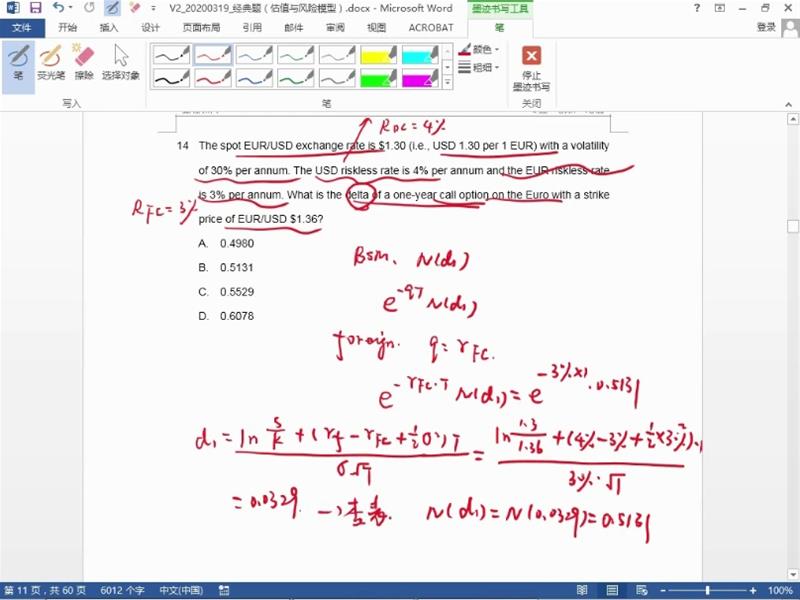 V2_20200319_经典题（估值与风险模型）.docx - Microsoft Word
墨迹书写工具
文件
开始
插入
设计
页面布局
引用
邮件
审阅
视图
ACROBAT
笔
登录
笔
荧光笔
擦除
选择对象
颜色
粗细
停止
墨迹书写
写入
笔
关闭
R_DC = 4%
14 The spot EUR/USD exchange rate is $1.30 (i.e., USD 1.30 per 1 EUR) with a volatility
of 30% per annum. The USD riskless rate is 4% per annum and the EUR riskless rate
is 3% per annum. What is the delta of a one-year call option on the Euro with a strike
R_FC = 3%
price of EUR/USD $1.36?
A. 0.4980
B. 0.5131
C. 0.5529
D. 0.6078
BSM. N(d₁)
e^-qT N(d₁)
foreign. q = r_FC.
e^-r_FC·T N(d₁) = e^-3%×1 · 0.5131
d₁ = (ln S/K + (r_f - r_FC + ½σ²)T) / σ√T = (ln 1.3/1.36 + (4% - 3% + ½×(30%)²)·1) / 30%·√1
= 0.0329. → 查表. N(d₁) = N(0.0329) = 0.5131
第 11 页，共 60 页 6012 个字 中文(中国)
100%